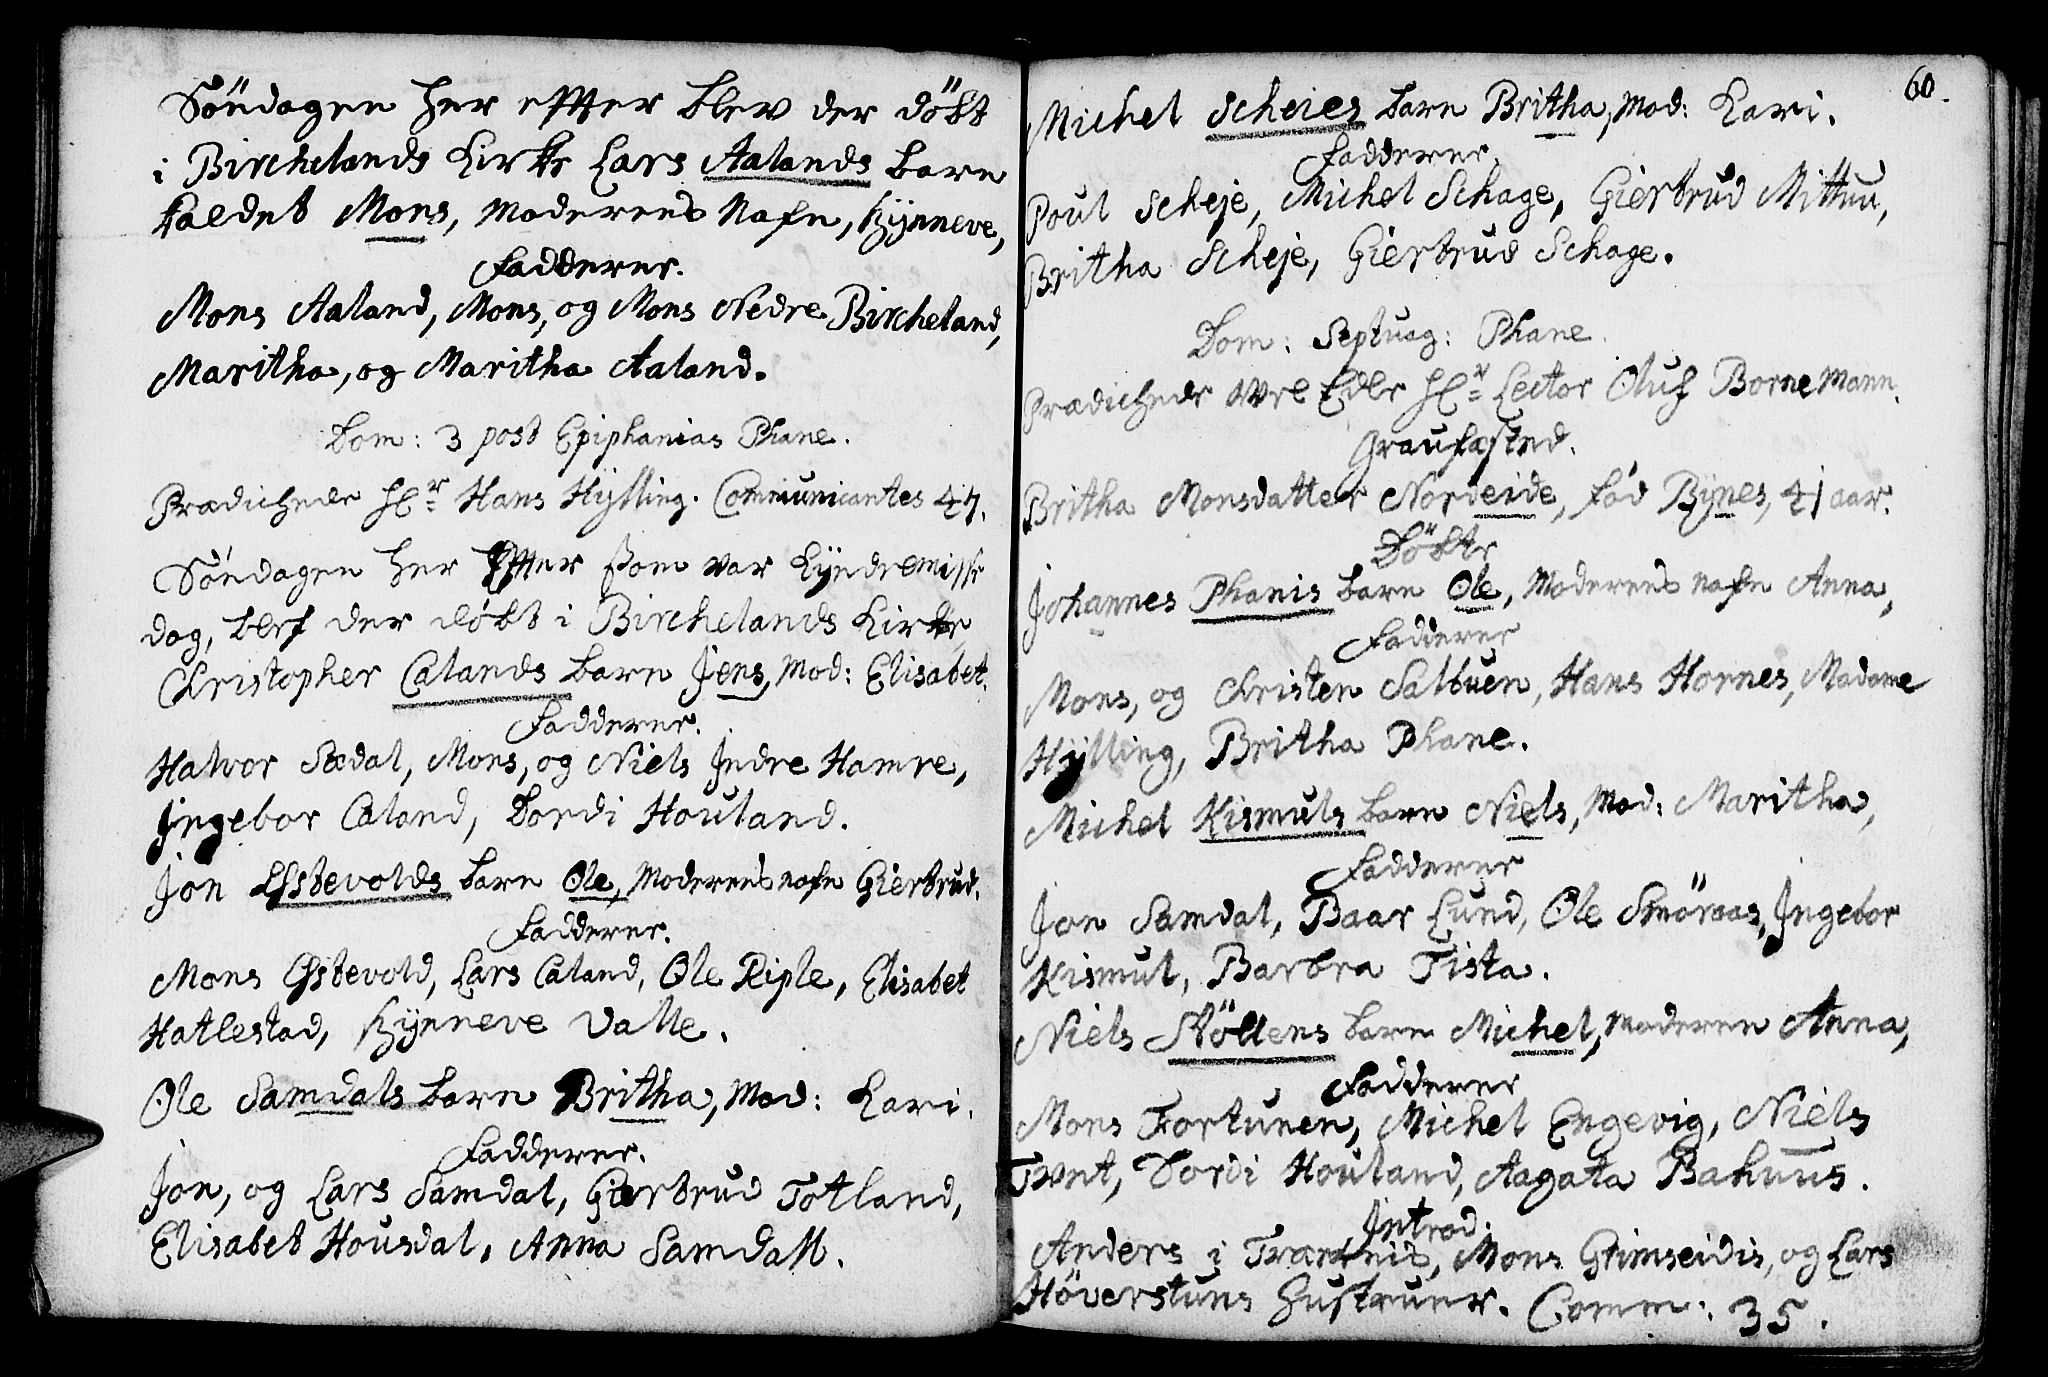 Söndagen her effter blev der döbt
i Birchelands Kirke Lars Aalands barn
kaldet Mons, Moderens Nafn, Synneve,
Fadderer.
Mons Aaland, Mons, og Mons Nedre Bircheland,
Maritha, og Maritha Aaland.
Dom: 3 post Epiphanias Phane.
Prædichede Hr. Hans Hÿlling. Communicantes 47.
Söndagen her Efter som var Kÿndelmisse
dag, blef der döbt i Birchelands Kirke,
Christopher Calands barn Jens, Mod: Elisabet.
Fadderer.
Halvor Sædal, Mons, og Niels Indre Hamre,
Ingebor Caland, Dordi Houland.
Jon Espevolds barn Ole, Moderens nafn Giertrud.
Fadderer.
Mons Espevold, Lars Caland, Ole Riple, Elisabet
Hatlestad, Synneve Valle.
Ole Samdals barn Britha, Mod: Kari.
Fadderer.
Jon, og Lars Samdal, Giertrud Totland,
Elisabet Housdal, Anna Samdall.
60.
Michel Scheies barn Britha, Mod: Kari.
Fadderer.
Poul Scheje, Michel Schage, Giertrud Mittun,
Britha Scheje, Giertrud Schage.
Dom: Septuag: Phane.
Prædichede Vel Edle Hr. Lector Oluf Bornemann.
Graufæsted.
Britha Monsdatter Nordeide, föd Bÿnes, 41 aar.
Döbte
Johannes Phanis barn Ole, Moderens nafn Anna,
Fadderer
Mons, og Christen Saltuen, Hans Hornes, Madame
Hÿlling, Britha Phane.
Michel Kismuls barn Niels, Mod: Maritha,
Fadderer
Jon Samdal, Baar Lund, Ole Smöraas, Ingebor
Kismul, Barbra Tista.
Niels Stöllens barn Michel, Moderen Anna,
Fadderer
Mons Fortunen, Michel Engevig, Niels
Tvet, Dordi Houland, Aagata Bahuus.
Introd:
Anders i Mons Grimseidis, og Lars
Höverstuns Hustruer. Comm: 35.